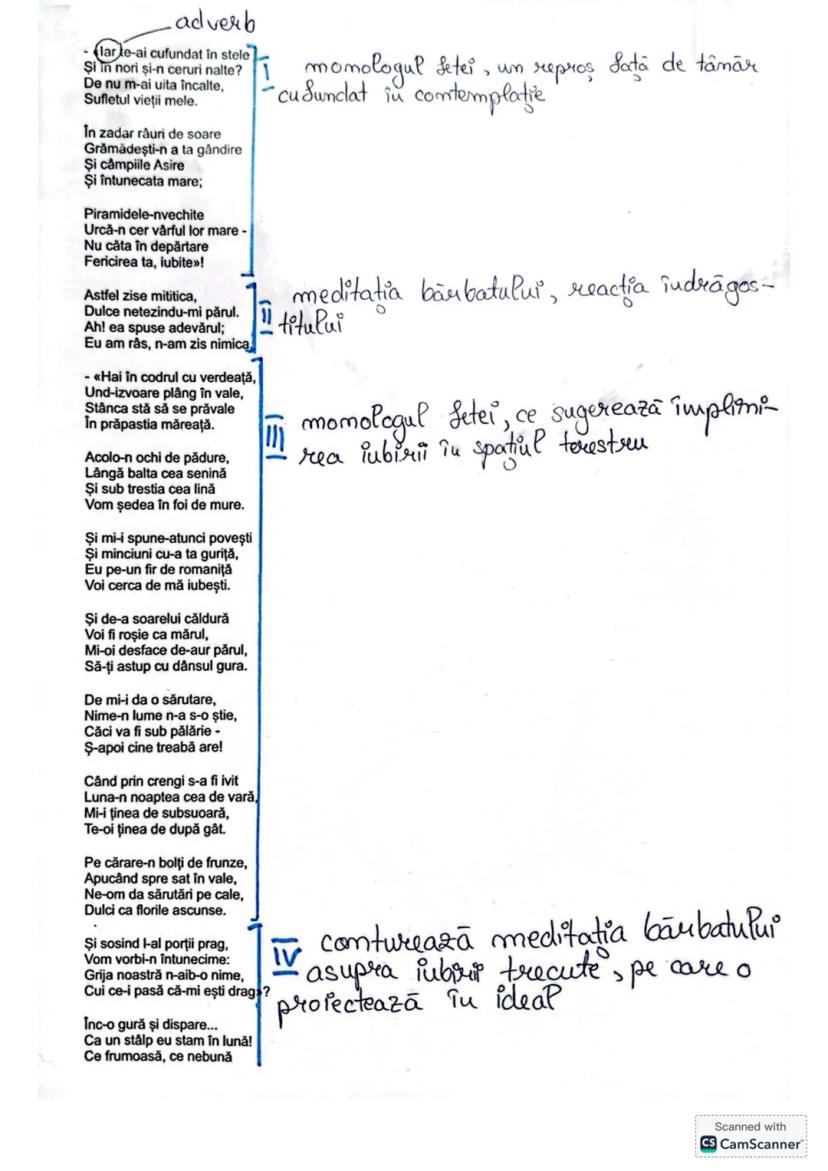 adverb
- «Iar te-ai cufundat în stele
Și în nori și-n ceruri nalte?
De nu m-ai uita încalte,
Sufletul vieții mele.
I
momologul fetei, un reproș față de tâmăr
cufundat în comtemplație
În zadar râuri de soare
Grămădești-n a ta gândire
Și câmpiile Asire
Și întunecata mare;
Piramidele-nvechite
Urcă-n cer vârful lor mare -
Nu căta în depărtare
Fericirea ta, iubite»!
Astfel zise mititica,
Dulce netezindu-mi părul.
Ah! ea spuse adevărul;
Eu am râs, n-am zis nimica.
II
meditația bărbatului, reacția îndrăgos-
titului
- «Hai în codrul cu verdeață,
Und-izvoare plâng în vale,
Stânca stă să se prăvale
În prăpastia măreață.
III
momologul fetei, ce sugerează împlini-
rea iubirii în spațiul terestru
Acolo-n ochi de pădure,
Lângă balta cea senină
Și sub trestia cea lină
Vom ședea în foi de mure.
Și mi-i spune-atunci povești
Și minciuni cu-a ta guriță,
Eu pe-un fir de romaniță
Voi cerca de mă iubești.
Și de-a soarelui căldură
Voi fi roșie ca mărul,
Mi-oi desface de-aur părul,
Să-ți astup cu dânsul gura.
De mi-i da o sărutare,
Nime-n lume n-a s-o știe,
Căci va fi sub pălărie -
Ș-apoi cine treabă are!
Când prin crengi s-a fi ivit
Luna-n noaptea cea de vară,
Mi-i ținea de subsuoară,
Te-oi ținea de după gât.
Pe cărare-n bolți de frunze,
Apucând spre sat în vale,
Ne-om da sărutări pe cale,
Dulci ca florile ascunse.
Și sosind l-al porții prag,
Vom vorbi-n întunecime:
Grija noastră n-aib-o nime,
Cui ce-i pasă că-mi ești drag»?
IV
comturează meditația bărbatului
asupra iubirii trecute, pe care o
proiectează în ideal
Înc-o gură și dispare...
Ca un stâlp eu stam în lună!
Ce frumoasă, ce nebună
Scanned with
CS CamScanner